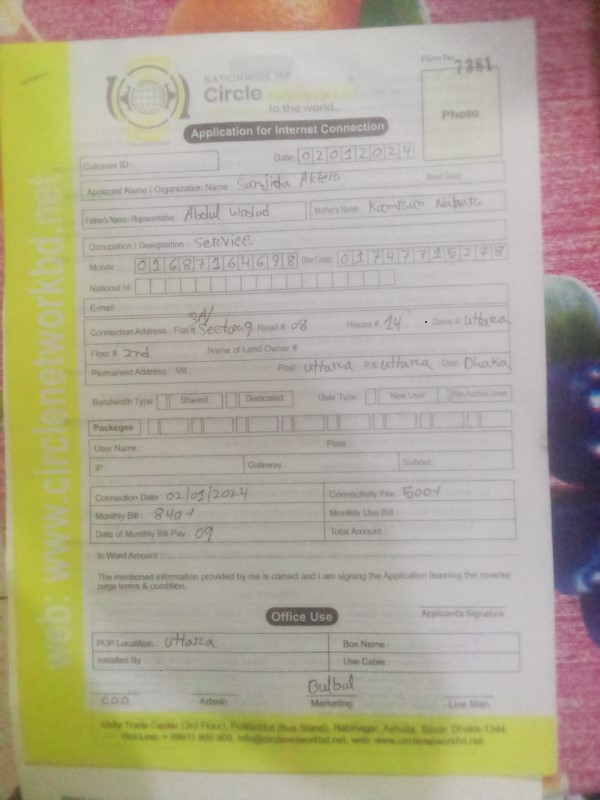 Form No. 7381
NATIONWIDE ISP
Circle
to the world...
Photo
Application for Internet Connection
Customer ID :
Date: 02012024
Applicant Name / Organization Name : Sanjida Akter
Father's Name / Representative : Abdul Wadud Mother's Name : Kamrun Nahar
Occupation / Designation : Service
Mobile : 01687164698 01747715278
National Id :
E-mail :
Connection Address : Flat # 2A/ Sector 9 Road # 08 House # 14 Zone # Uttara
Floor # 2nd Name of Land Owner #
Permanent Address : Vill : Post : Uttara P.S Uttara Dist : Dhaka
Bandwidth Type Shared Dedicated User Type : New User Re-Active User
Packages
User Name : Pass :
IP : Gateway : Subnet :
Connection Date : 02/01/2024 Connectivity Fee : 500/-
Monthly Bill : 840/- Monthly Use Bill :
Date of Monthly Bill Pay : 09 Total Amount :
In Word Amount :
The mentioned information provided by me is correct and I am signing the Application learning the reverse
page terms & condition.
Applicant's Signature
Office Use
POP Locatiton : Uttara Box Name :
Installed By : Use Cable :
Bulbul
C.O.O Admin Marketing Line Man
Unite Trade Center (3rd Floor), (Bus Stand), Nabinagar, Ashulia, Savar, Dhaka-1344
Hot-Line: + 09611 800 900, info@circlenetworkbd.net, web: www.circlenetworkbd.net
web: www.circlenetworkbd.net